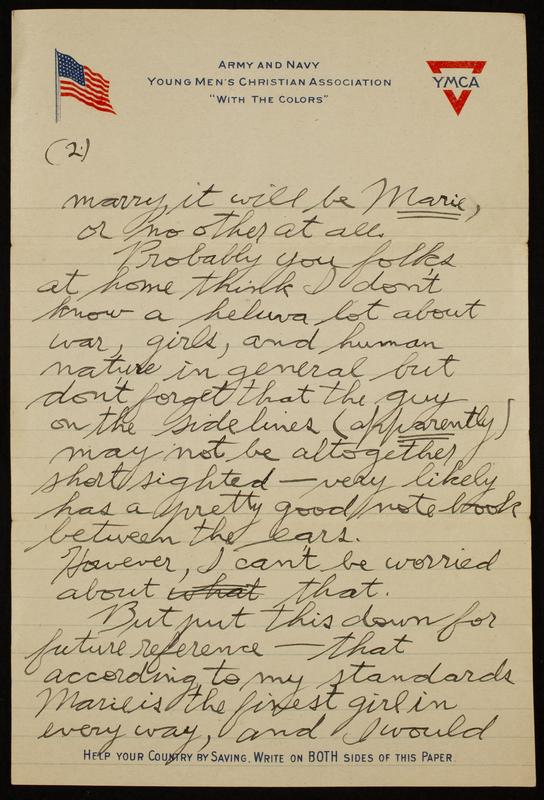 ARMY AND NAVY
YOUNG MEN'S CHRISTIAN ASSOCIATION
"WITH THE COLORS"
YMCA
(2)
marry, it will be Marie,
or no other at all.
Probably you folks
at home think I don't
know a heluva lot about
war, girls, and human
nature in general but
don't forget that the guy
on the sidelines (apparently)
may not be altogether
short sighted — very likely
has a pretty good note book
between the ears.
However, I can't be worried
about what that.
But put this down for
future reference — that
according to my standards
Marie is the finest girl in
every way, and I would
HELP YOUR COUNTRY BY SAVING. WRITE ON BOTH SIDES OF THIS PAPER.